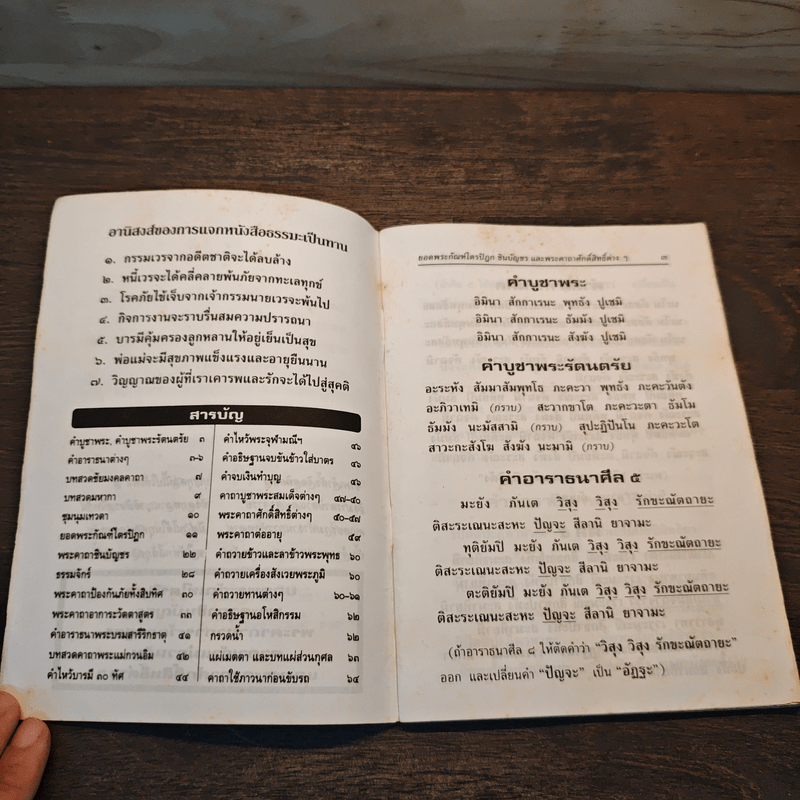 อานิสงส์ของการแจกหนังสือธรรมะเป็นทาน
๑. กรรมเวรจากอดีตชาติจะได้ลบล้าง
๒. หนี้เวรจะได้คลี่คลายพ้นภัยจากทะเลทุกข์
๓. โรคภัยไข้เจ็บจากเจ้ากรรมนายเวรจะพ้นไป
๔. กิจการงานจะราบรื่นสมความปรารถนา
๕. บารมีคุ้มครองลูกหลานให้อยู่เย็นเป็นสุข
๖. พ่อแม่จะมีสุขภาพแข็งแรงและอายุยืนนาน
๗. วิญญาณของผู้ที่เราเคารพและรักจะได้ไปสู่สุคติ
สารบัญ
คำบูชาพระ, คำบูชาพระรัตนตรัย ๓
คำอาราธนาต่างๆ ๓-๖
บทสวดชัยมงคลคาถา ๗
บทสวดมหากา ๙
ชุมนุมเทวดา ๑๐
ยอดพระกัณฑ์ไตรปิฎก ๑๑
พระคาถาชินบัญชร ๒๒
ธรรมจักร์ ๒๘
พระคาถาป้องกันภัยทั้งสิบทิศ ๓๐
พระคาถาอาการะวัตตาสูตร ๓๓
คำอาราธนาพระบรมสารีริกธาตุ ๔๑
บทสวดคาถาพระแม่กวนอิม ๔๒
คำไหว้บารมี ๓๐ ทัศ ๔๔
คำไหว้พระจุฬามณีฯ ๔๖
คำอธิษฐานจบขันข้าวใส่บาตร ๔๖
คำจบเงินทำบุญ ๔๖
คาถาบูชาพระสมเด็จต่างๆ ๔๗-๔๐
พระคาถาศักดิ์สิทธิ์ต่างๆ ๕๐-๕๗
พระคาถาต่ออายุ ๕๙
คำถวายข้าวและลาข้าวพระพุทธ ๖๐
คำถวายเครื่องสังเวยพระภูมิ ๖๐
คำถวายทานต่างๆ ๖๐-๖๑
คำอธิษฐานอโหสิกรรม ๖๒
กรวดน้ำ ๖๒
แผ่เมตตา และบทแผ่ส่วนกุศล ๖๓
คาถาใช้ภาวนาก่อนขับรถ ๖๔
ยอดพระกัณฑ์ไตรปิฎก ชินบัญชร และพระคาถาศักดิ์สิทธิ์ต่าง ๆ ๓
คำบูชาพระ
อิมินา สักกาเรนะ พุทธัง ปูเชมิ
อิมินา สักกาเรนะ ธัมมัง ปูเชมิ
อิมินา สักกาเรนะ สังฆัง ปูเชมิ
คำบูชาพระรัตนตรัย
อะระหัง สัมมาสัมพุทโธ ภะคะวา พุทธัง ภะคะวันตัง
อะภิวาเทมิ (กราบ) สะวากขาโต ภะคะวะตา ธัมโม
ธัมมัง นะมัสสามิ (กราบ) สุปะฏิปันโน ภะคะวะโต
สาวะกะสังโฆ สังฆัง นะมามิ (กราบ)
คำอาราธนาศีล ๕
มะยัง ภันเต วิสุง วิสุง รักขะณัตถายะ
ติสะระเณนะสะหะ ปัญจะ สีลานิ ยาจามะ
ทุติยัมปิ มะยัง ภันเต วิสุง วิสุง รักขะณัตถายะ
ติสะระเณนะสะหะ ปัญจะ สีลานิ ยาจามะ
ตะติยัมปิ มะยัง ภันเต วิสุง วิสุง รักขะณัตถายะ
ติสะระเณนะสะหะ ปัญจะ สีลานิ ยาจามะ
(ถ้าอาราธนาศีล ๘ ให้ตัดคำว่า “วิสุง วิสุง รักขะณัตถายะ”
ออก และเปลี่ยนคำ “ปัญจะ” เป็น “อัฏฐะ”)